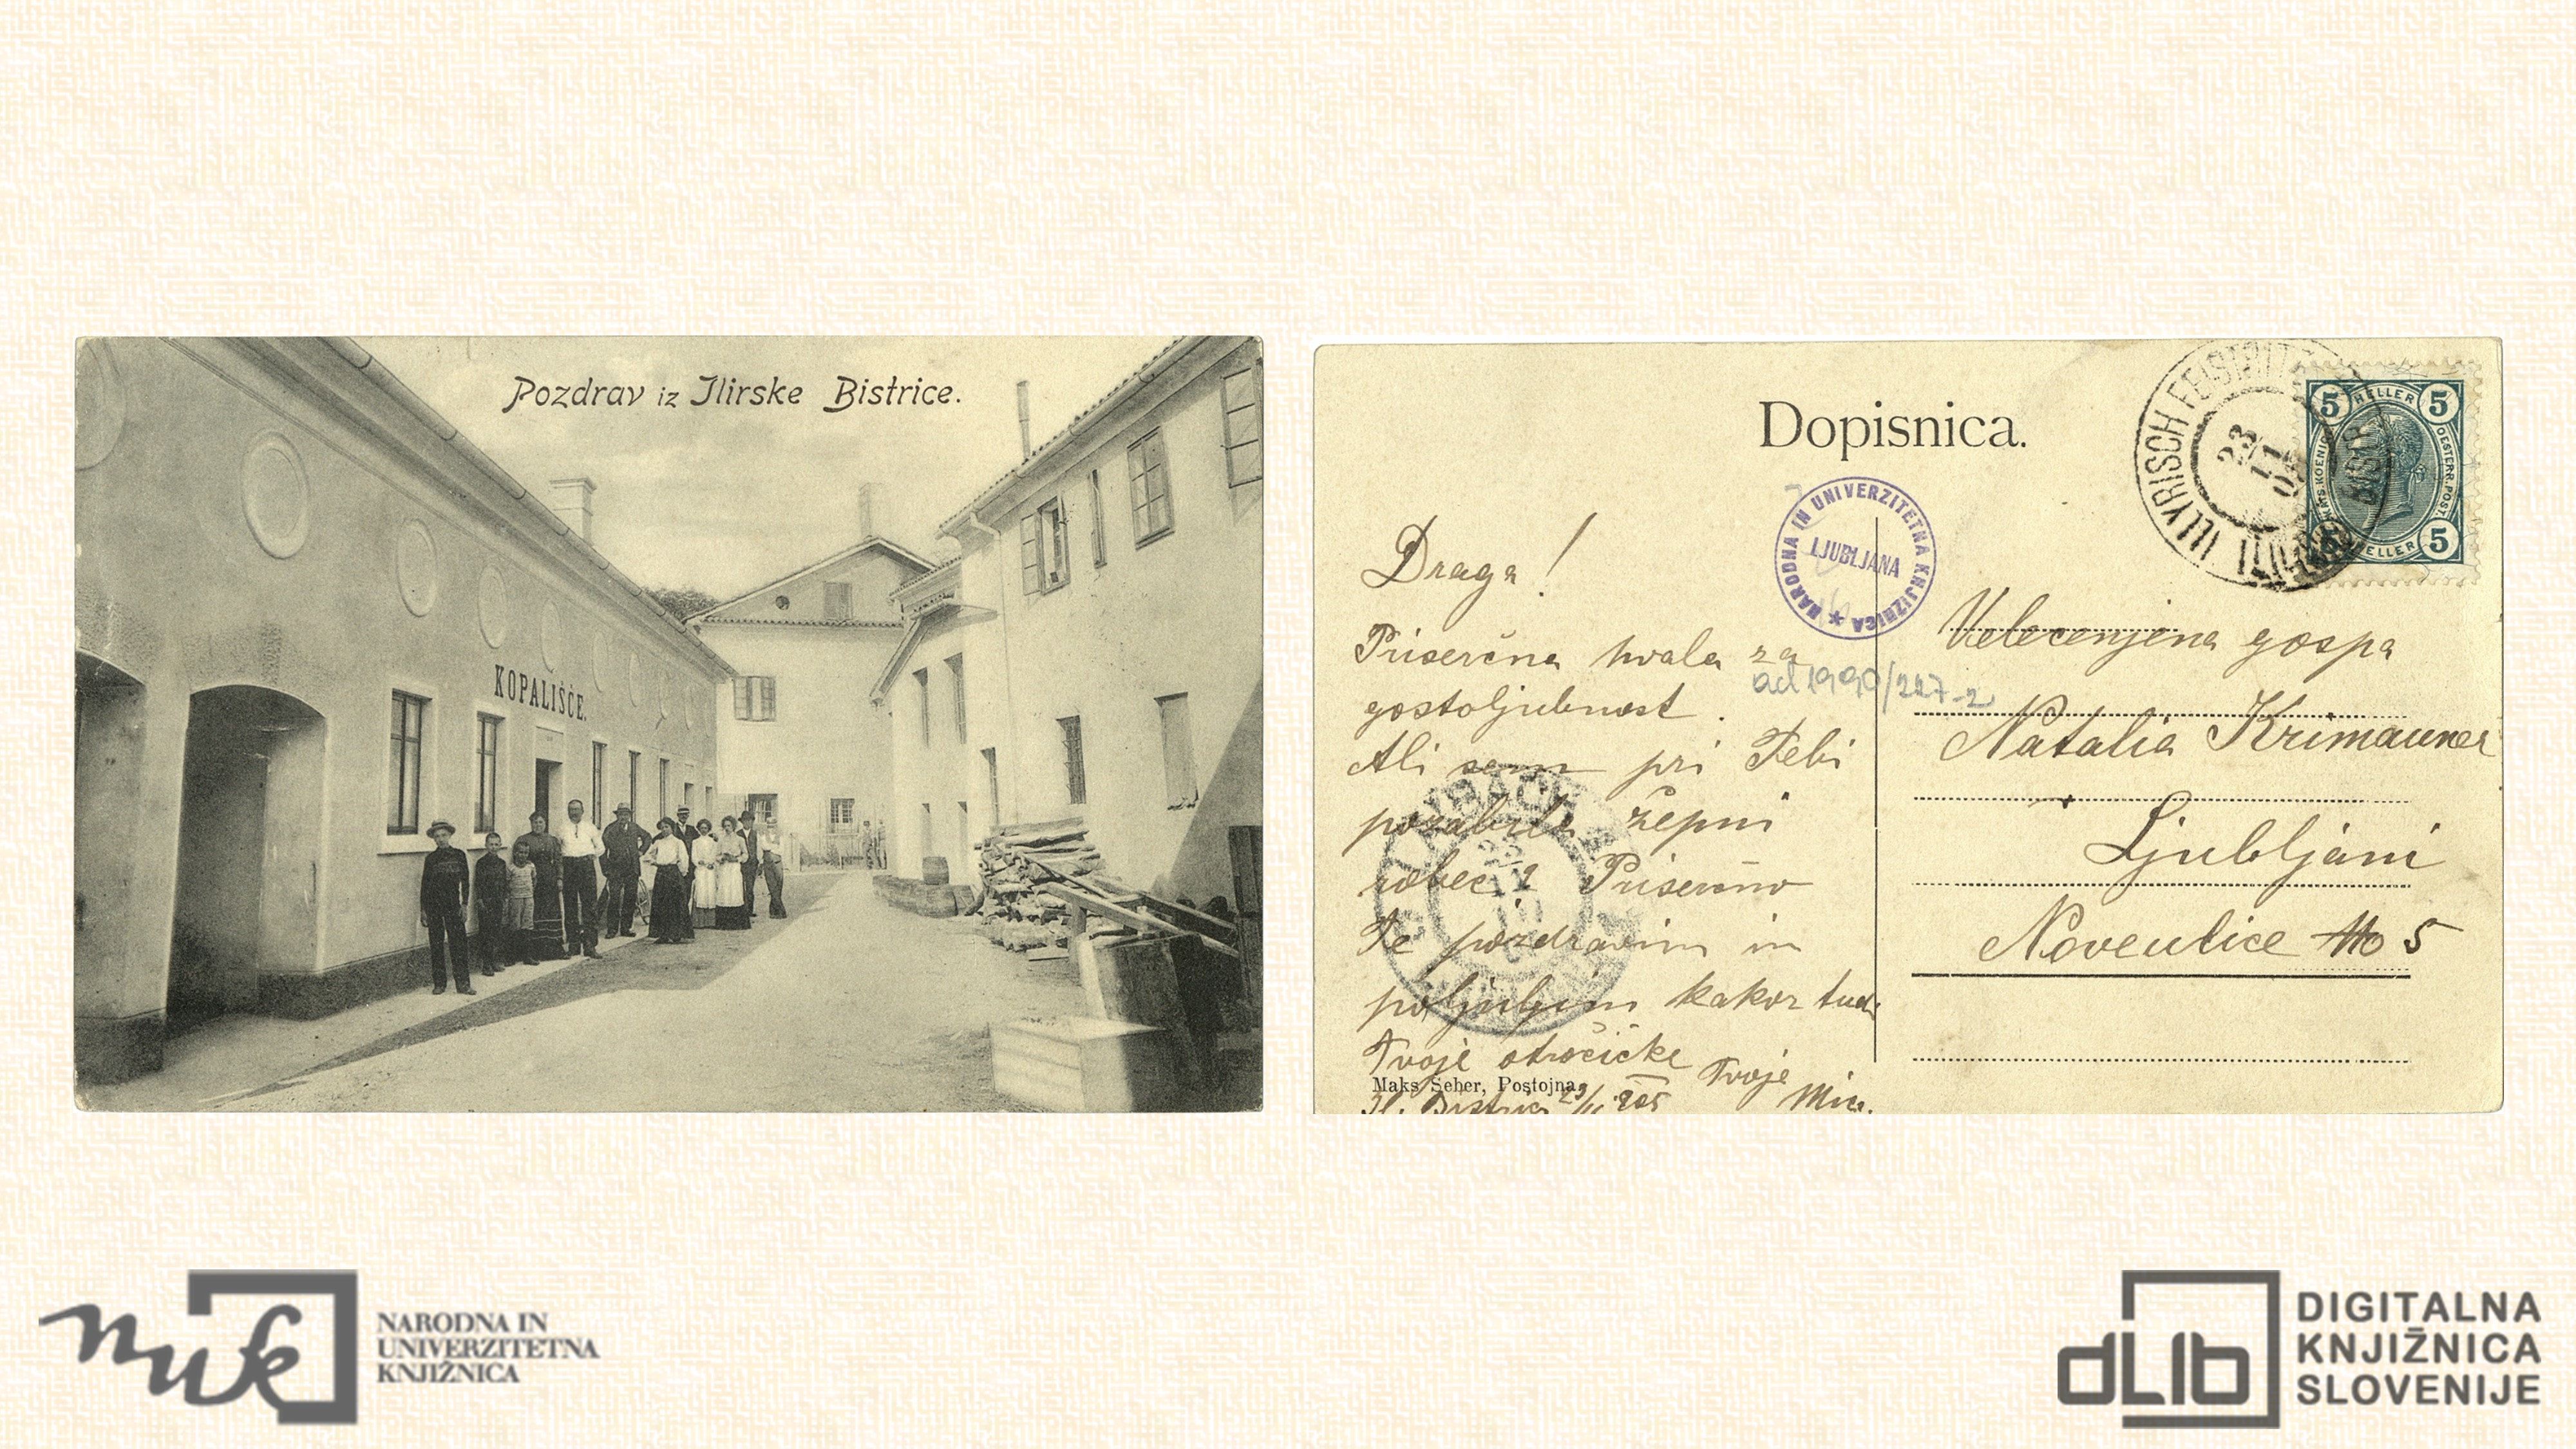 Pozdrav iz Ilirske Bistrice.
KOPALIŠČE.
Dopisnica.
ILLYRISCH FEISTRITZ
23
11
5 HELLER 5
5 HELLER 5
OESTERR. POST.
NARODNA IN UNIVERZITETNA KNJIŽNICA
LJUBLJANA
Draga!
Priserčna hvala za
gostoljubnost.
Ali sem pri Tebi
pozabila žepni
robec? Priserčno
Te pozdravim in
poljubljim kakor tudi
Tvoje otročičke
Tvoja
Maks Seher, Postojna.
Il. Bistrica 23/11. 905
Mici.
ad 1990/227-2
Velecenjena gospa
Natalia Krimauner
Ljubljani
Noveulice 5
LAIBACH
nuk
NARODNA IN
UNIVERZITETNA
KNJIŽNICA
dLib
DIGITALNA
KNJIŽNICA
SLOVENIJE